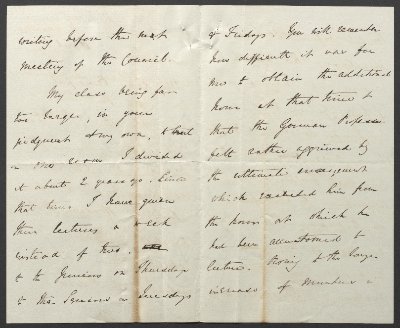 writing before the next
meeting of the Council.
My class being far
too large, in your
judgment & my own, to
in one room I divided
it about 2 years ago. Since
that time I have given
three lectures a week
instead of two.
to the Juniors on Thursdays
to the Seniors on Tuesdays
& Fridays. You will remember
how difficult it was for
me to obtain the additional
hour at that time &
that the German Professor
felt rather aggrieved by
the ultimate arrangement
which excluded him from
the hour at which he
had been accustomed to
lecture. Owing to the large
increase of numbers in